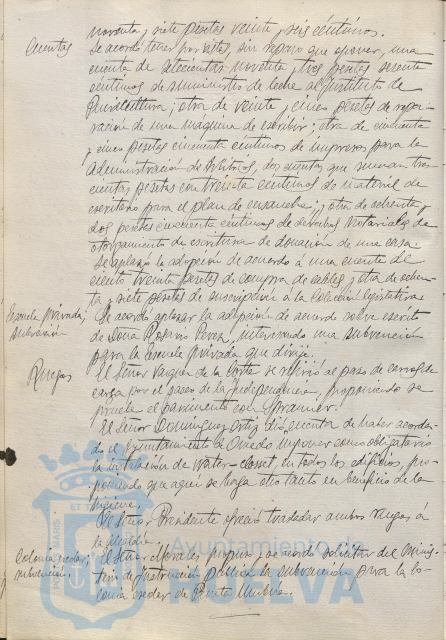 noventa y siete pesetas veinte y seis céntimos.
Cuentas
Se acordó tener por vistas, sin reparo que oponer, una
cuenta de setecientas noventa y tres pesetas sesenta
céntimos de suministro de leche al Instituto de
Puericultura; otra de veinte y cinco pesetas de repa-
ración de una máquina de escribir; otra de cincuenta
y cinco pesetas cincuenta céntimos de impresos para la
Administración de Arbitrios, dos cuentas que suman tres-
cientas pesetas con treinta céntimos de material de
escritorio para el plano de ensanche; y otra de ochenta y
dos pesetas cincuenta céntimos de derechos notariales de
otorgamiento de escritura de donación de una casa.
Se aplazó la adopción de acuerdo a una cuenta de
ciento treinta pesetas de compra de cables y otra de ochen-
ta y siete pesetas de suscripción a la Colección legislativa.
Escuela privada;
subvención
Se acordó aplazar la adopción de acuerdo sobre escrito
de Doña Rosario Perez, interesando una subvención
para la Escuela privada que dirije.
Ruegos
El Señor Vazquez de la Corte se refirió al paso de carros de
carga por el paseo de la Independencia, proponiendo se
pruebe el pavimento con
El Señor Dominguez Ortiz dió cuenta de haber acorda-
do el Ayuntamiento de Oviedo imponer como obligatorio
la instalación de Water-closset, en todos los edificios, pro-
poniendo que aquí se haga otro tanto en beneficio de la
higiene.
El Señor Presidente ofreció trasladar ambos ruegos a
la alcaldía
Colonia escolar;
subvención
El Señor Morales propuso y se acordó solicitar del Minis-
terio de Instrucción Pública la subvención para la Co-
lonia escolar de Punta Umbría.
Ayuntamiento de
HUELVA